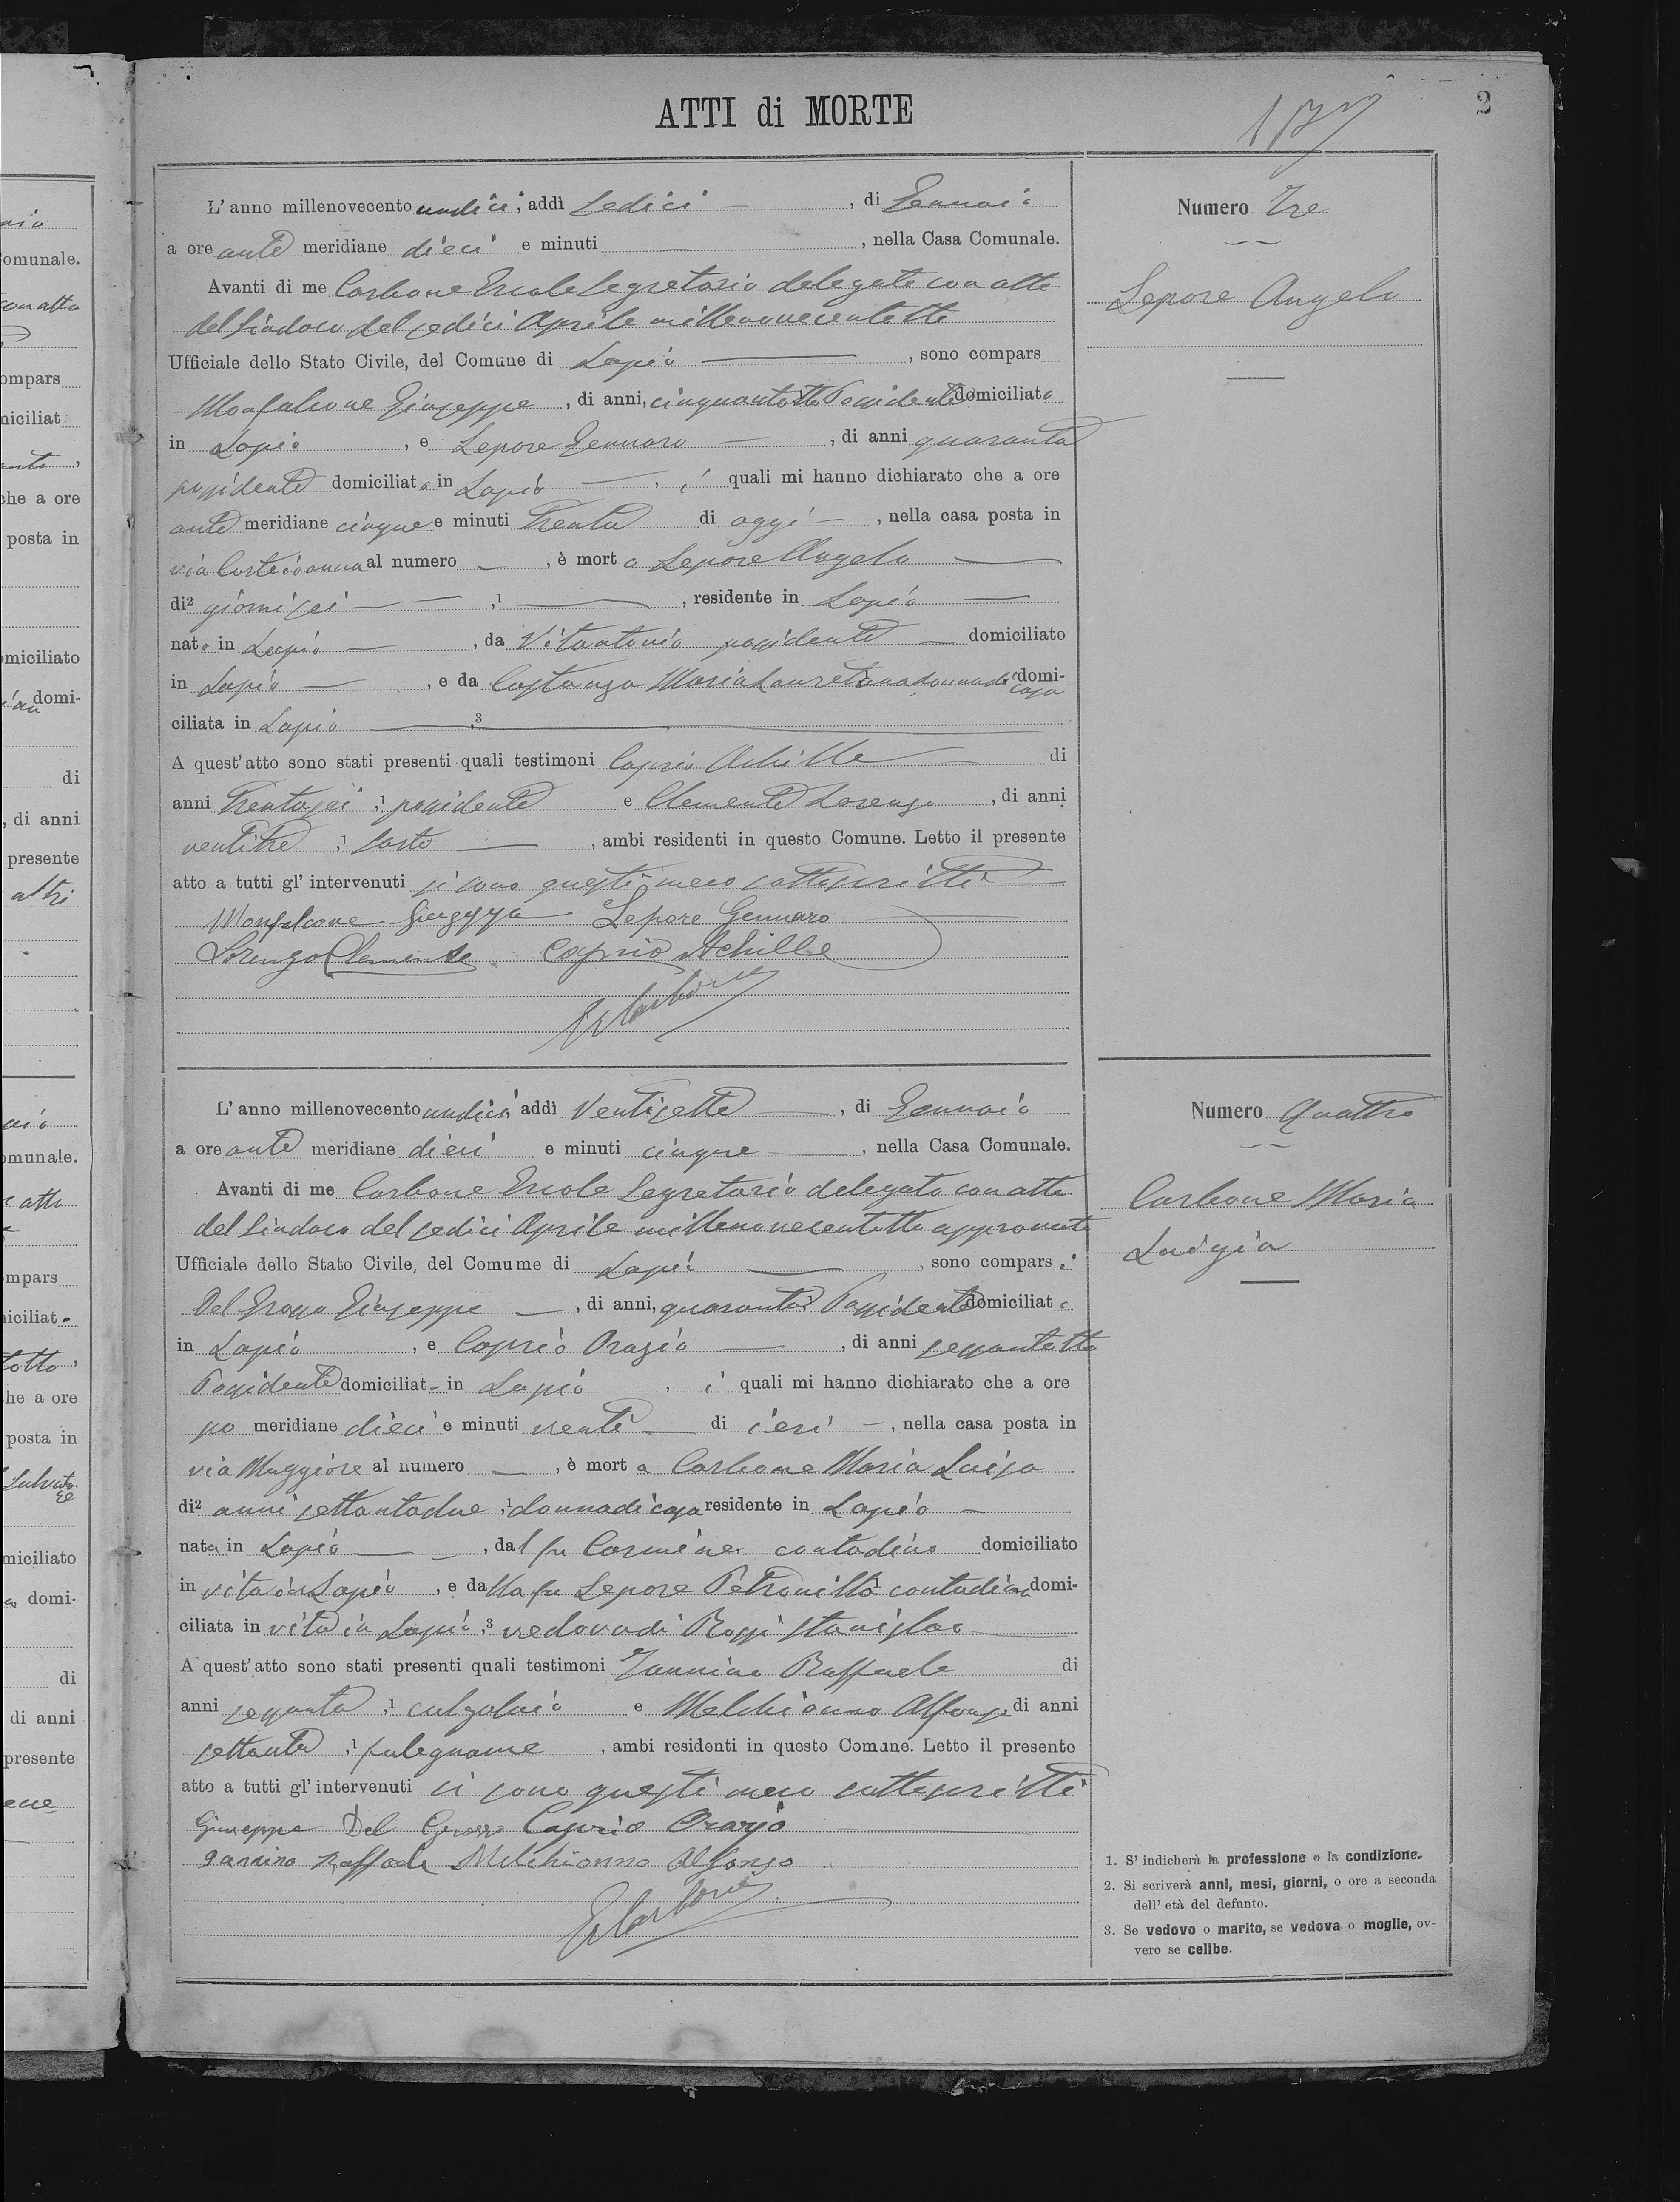 ATTI di MORTE
2
L'anno millenovecento undici, addì sedici, di Gennaio
a ore ante meridiane dieci e minuti, nella Casa Comunale.
Avanti di me Carbone Ercole Segretario delegato con atto
del Sindaco del sedici Aprile millenovecentotto
Ufficiale dello Stato Civile, del Comune di Lapio, sono compars
Monfalcone Giuseppe, di anni, cinquantotto Possidente domiciliato
in Lapio, e Lepore Gennaro, di anni quaranta
possidente domiciliato in Lapio, i quali mi hanno dichiarato che a ore
ante meridiane cinque e minuti Trenta di oggi, nella casa posta in
via al numero, è morto Lepore Angelo
di2 giorni sei,1 , residente in Lapio
nato in Lapio, da Vitantonio possidente domiciliato
in Lapio, e da Costanza Maria Lauretana donna di casa domi-
ciliata in Lapio ,3
A quest'atto sono stati presenti quali testimoni Caprio Achille di
anni Trentasei ,1 possidente e Clemente Lorenzo, di anni
ventitre ,1 sarto, ambi residenti in questo Comune. Letto il presente
atto a tutti gl'intervenuti si sono questi meco sottoscritti
Monfalcone Giuseppe Lepore Gennaro
Lorenzo Clemente Caprio Achille
E Carbone
Numero Tre
Lepore Angelo
L'anno millenovecento undici addì Ventisette, di Gennaio
a ore ante meridiane dieci e minuti cinque, nella Casa Comunale.
Avanti di me Carbone Ercole Segretario delegato con atto
del Sindaco del sedici Aprile millenovecentotto approvato
Ufficiale dello Stato Civile, del Comume di Lapio, sono comparsi
Del Grosso Giuseppe, di anni, quaranta Possidente domiciliato
in Lapio, e Caprio Orazio, di anni sessantotto
Possidente domiciliato in Lapio, i quali mi hanno dichiarato che a ore
po meridiane dieci e minuti venti di ieri, nella casa posta in
via Maggiore al numero, è morta Carbone Maria Luisa
di2 anni settantadue ,1 donna di casa residente in Lapio
nata in Lapio, dal fu Carmine contadino domiciliato
in vita in Lapio, e dalla fu Lepore Petronilla contadina domi-
ciliata in vita in Lapio ,3 vedova di Rossi Stanislao
A quest'atto sono stati presenti quali testimoni Iannino Raffaele di
anni sessanta ,1 calzolaio e Melchionno Alfonso di anni
settanta ,1 falegname, ambi residenti in questo Comune. Letto il presento
atto a tutti gl'intervenuti si sono questi meco sottoscritti
Giuseppe Del Grosso Caprio Orazio
Iannino Raffaele Melchionno Alfonso
E Carbone
Numero Quattro
Carbone Maria
Luigia
1. S'indicherà la professione o la condizione.
2. Si scriverà anni, mesi, giorni, o ore a seconda
dell'età del defunto.
3. Se vedovo o marito, se vedova o moglie, ov-
vero se celibe.